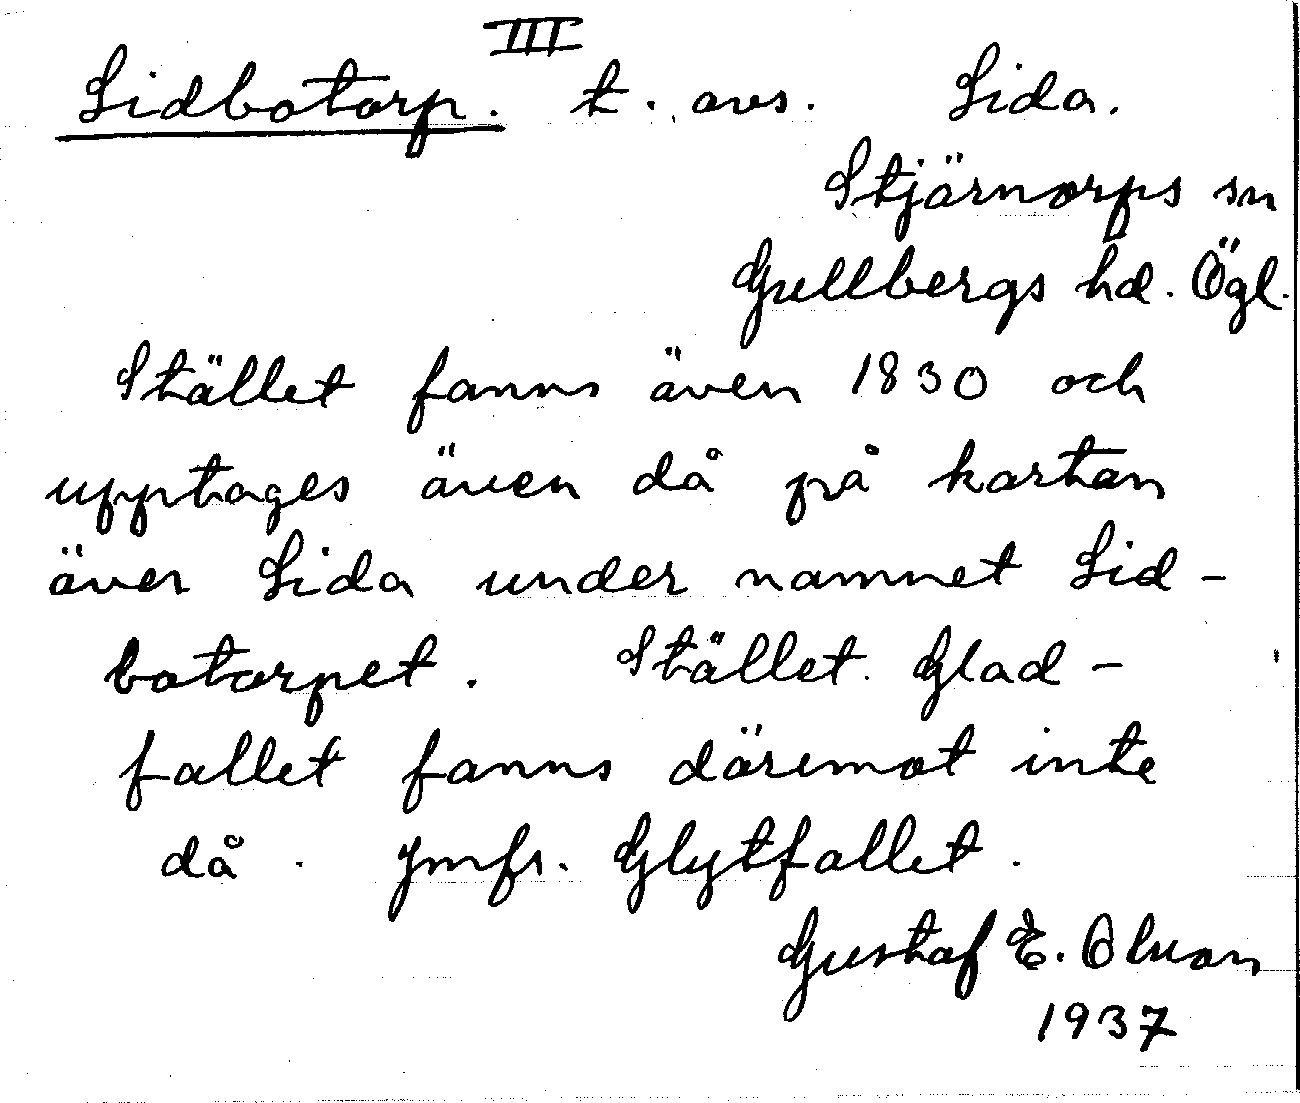 III
Sidbotorp. t. avs. Sida.
Stjärnorps sn
Gullbergs hd. Ögl.
Stället fanns även 1830 och
upptages även då på kartan
över Sida under namnet Sid-
botorpet. Stället Glad-
fallet fanns däremot inte
då. Jmfr. Glytfallet.
Gustaf E. Olson
1937